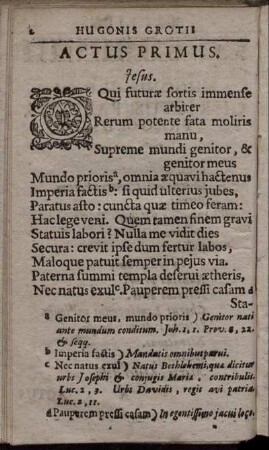 2 HUGONIS GROTII
ACTUS PRIMUS.
Jesus.
O Qui futuræ sortis immensæ
arbiter
Rerum potente fata moliris
manu,
Supreme mundi genitor, &
genitor meus
Mundo prioris a, omnia æquavi hactenus
Imperia factis b: si quid ulterius jubes,
Paratus asto: cuncta quæ timeo feram:
Hac lege veni. Quem tamen finem gravi
Statuis labori? Nulla me vidit dies
Secura: crevit ipse dum fertur labos,
Maloque patuit semper in pejus via.
Paterna summi templa deserui ætheris,
Nec natus exul c. Pauperem pressi casam d
Sta-
a Genitor meus, mundo prioris) Genitor nati
ante mundum conditum. Joh. 1, 1. Prov. 8, 22.
& seqq.
b Imperia factis) Mandatis omnibus parui.
c Nec natus exul) Natus Bethlehemi, quæ dicitur
urbs Josephi & conjugis Maria, contribulis.
Luc. 2, 3. Urbs Davidis, regis avi patria.
Luc. 2, 11.
d Pauperem pressi casam) In egentissimo jacui loco.